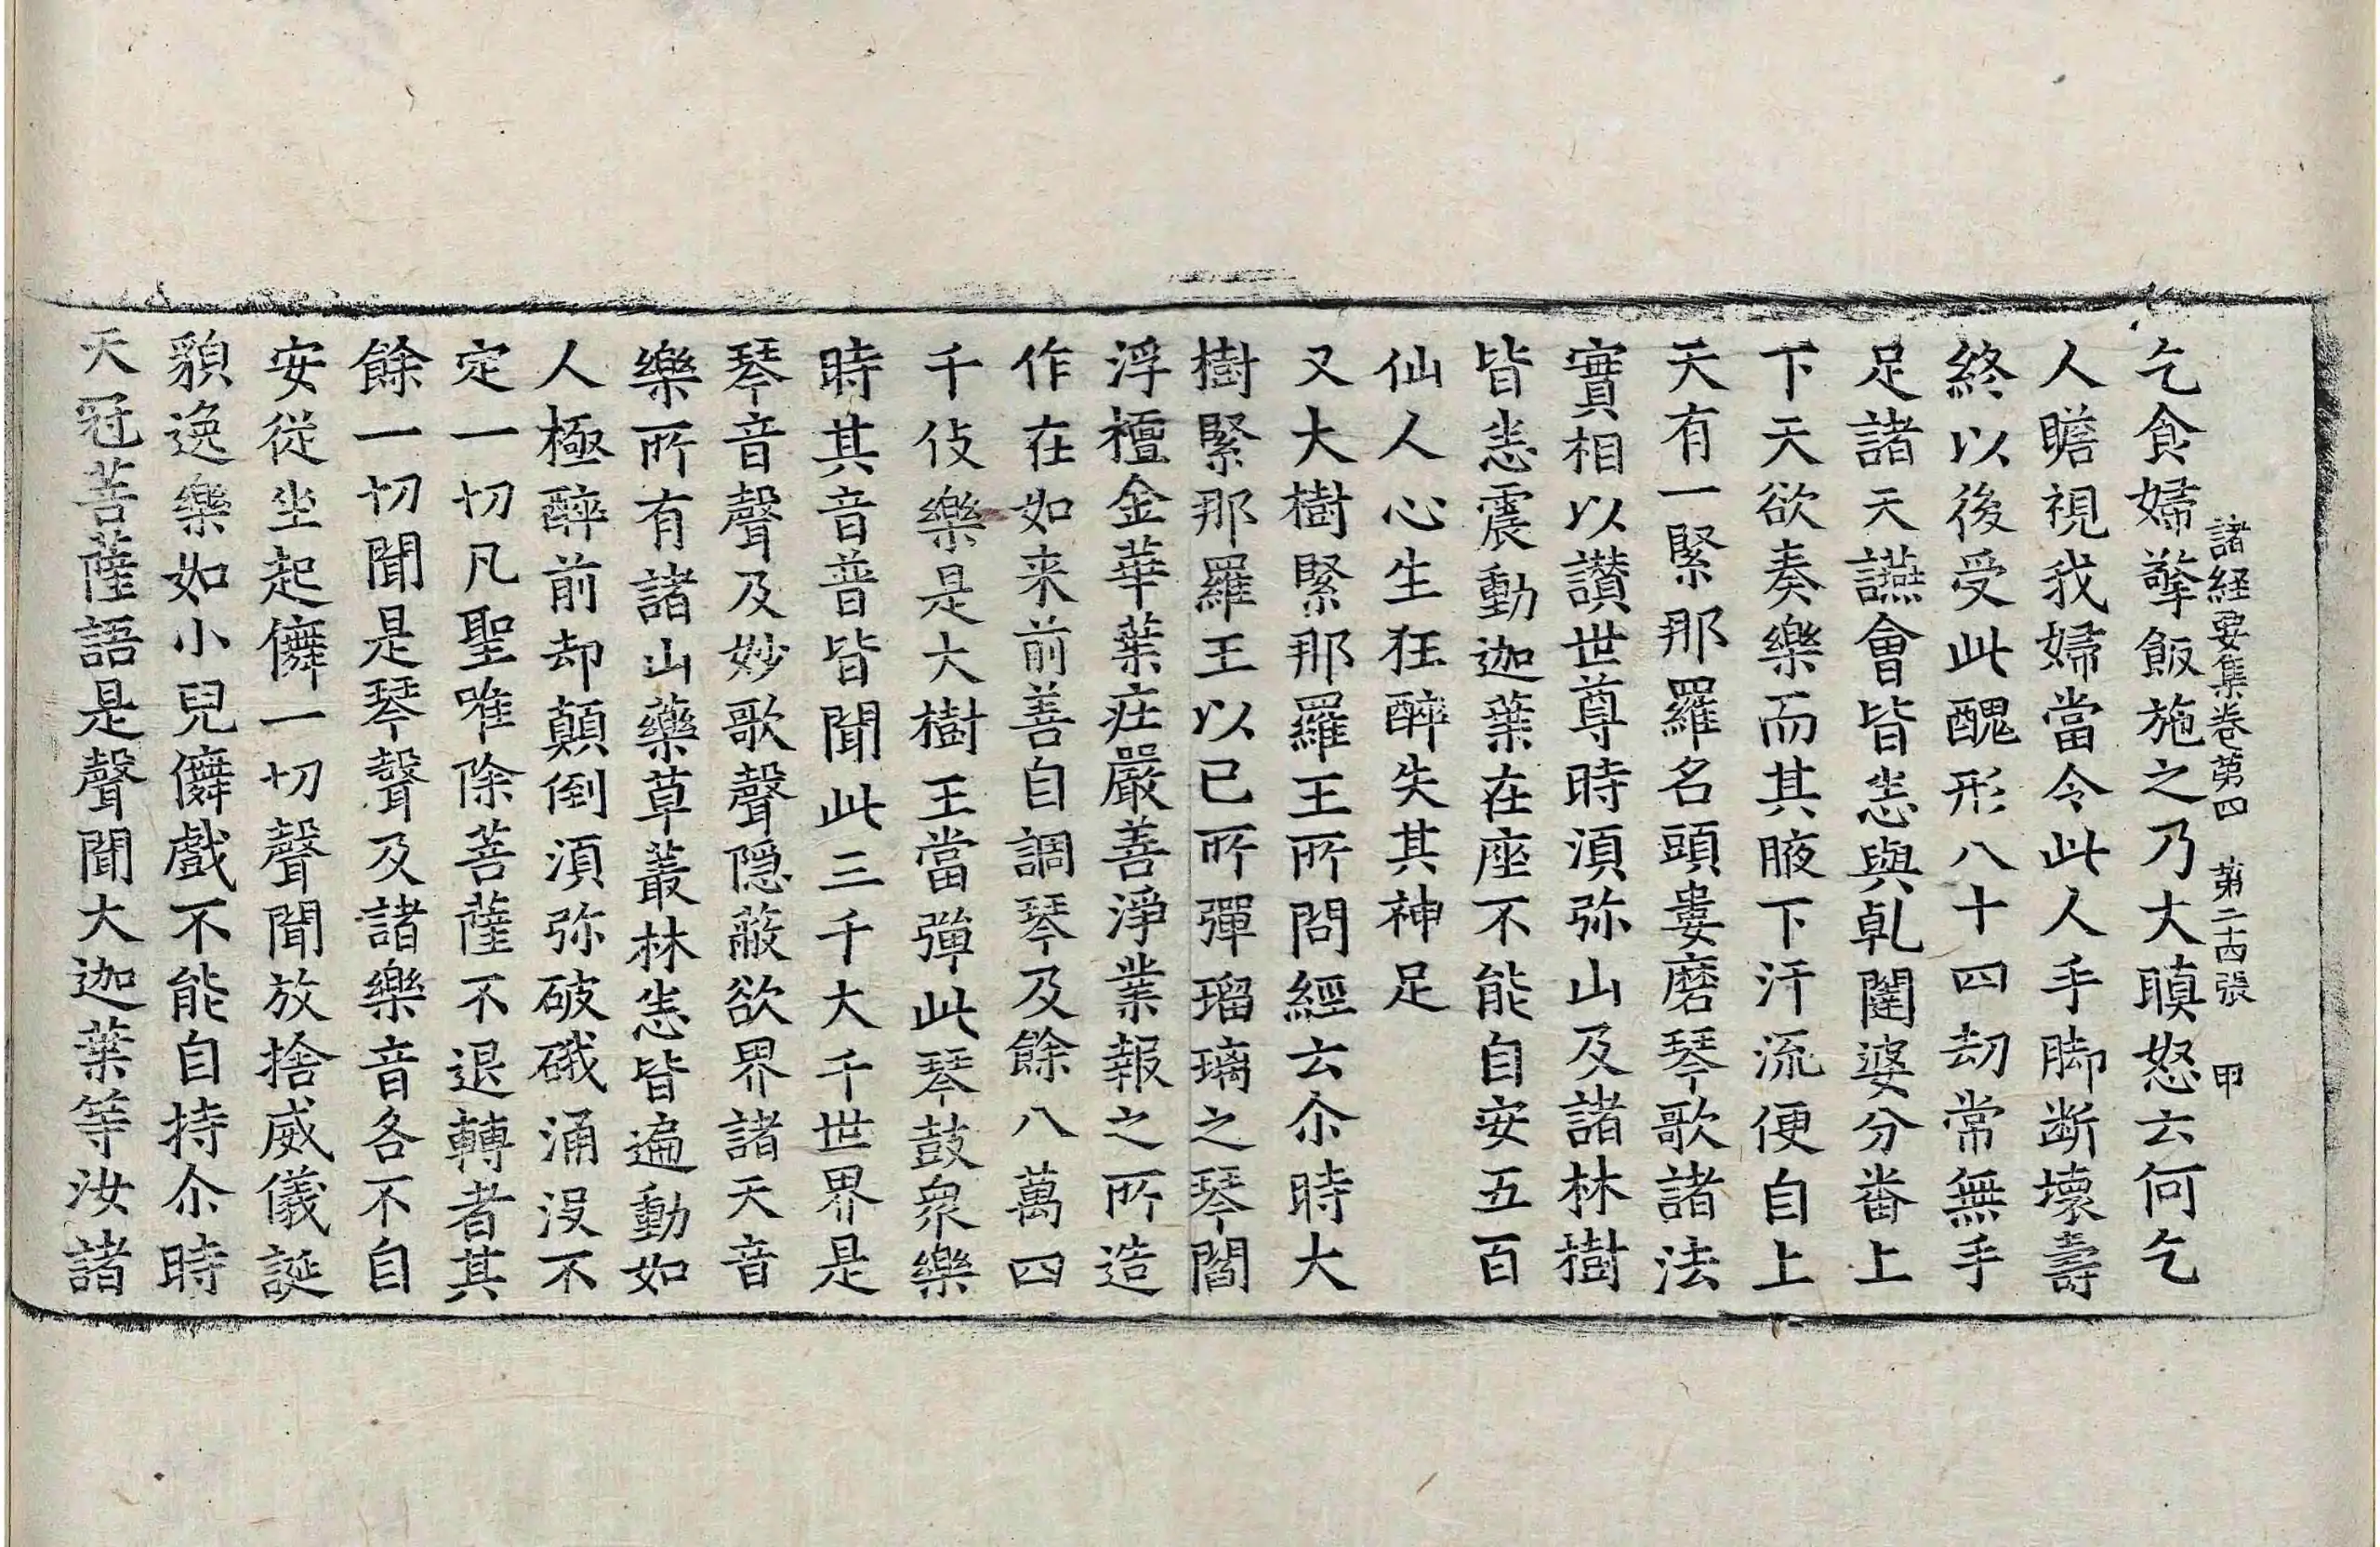 諸經要集卷第四 第二十四張 甲
乞食婦擎飯施之乃大瞋怒云何乞
人瞻視我婦當令此人手脚断壞壽
終以後受此醜形八十四劫常無手
足諸天讌會皆悉與乹闥婆分番上
下天欲奏樂而其腋下汗流便自上
天有一緊那羅名頭婁磨琴歌諸法
實相以讃世尊時湏弥山及諸林樹
皆悉震動迦葉在座不能自安五百
仙人心生狂醉失其神足
又大樹緊那羅王所問經云尒時大
樹緊那羅王以已所彈瑠璃之琴閻
浮檀金華葉庄嚴善淨業報之所造
作在如来前善自調琴及餘八萬四
千伎樂是大樹王當彈此琴鼓衆樂
時其音普皆聞此三千大千世界是
琴音聲及妙歌聲隐蔽欲界諸天音
樂所有諸山藥草叢林悉皆遍動如
人極醉前却顛倒湏弥破硪涌没不
定一切凡聖唯除菩薩不退轉者其
餘一切聞是琴聲及諸樂音各不自
安從坐起儛一切聲聞放捨威儀誕
貌逸樂如小兒儛戲不能自持尒時
天冠菩薩語是聲聞大迦葉等汝諸